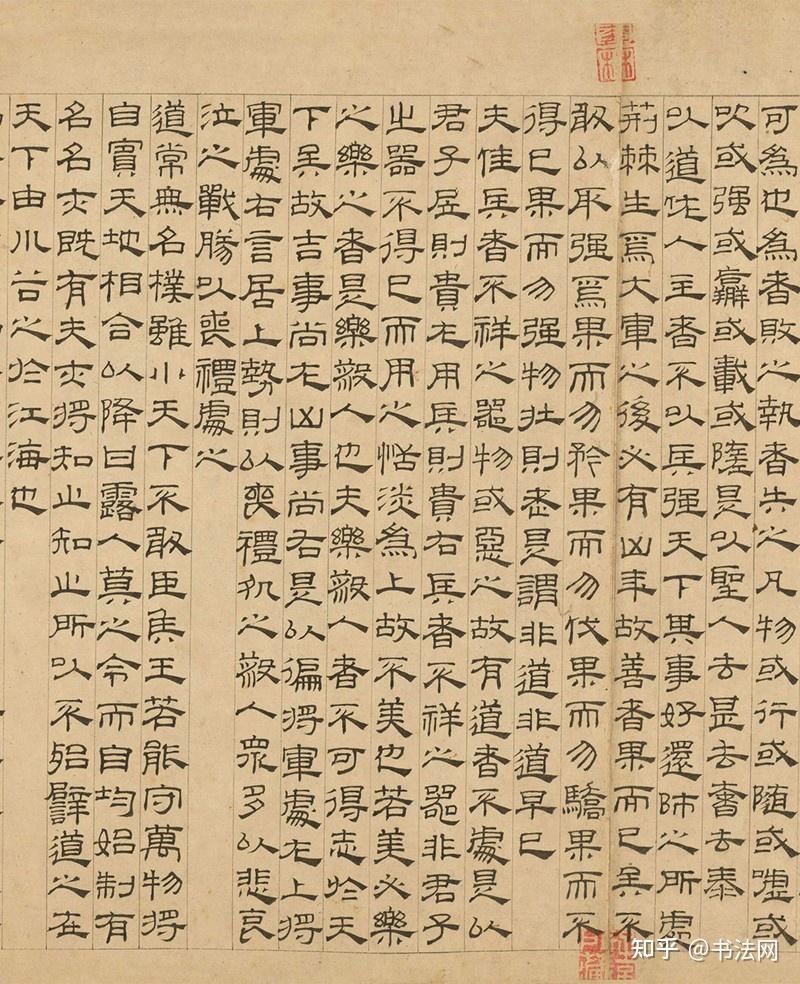 可為也為者敗之執者失之凡物或行或隨或噓或
吹或强或羸或載或隳是以聖人去甚去奢去泰
以道佐人主者不以兵强天下其事好還師之所處
荊棘生焉大軍之後必有凶年故善者果而已矣不
敢以取强焉果而勿矜果而勿伐果而勿驕果而不
得已果而勿强物壯則老是謂非道非道早已
夫佳兵者不祥之器物或惡之故有道者不處是以
君子居則貴左用兵則貴右兵者不祥之器非君子
之器不得已而用之恬淡為上故不美也若美必樂
之樂之者是樂殺人也夫樂殺人者不可得志於天
下矣故吉事尚左凶事尚右是以偏將軍處左上將
軍處右言居上勢則以喪禮處之殺人衆多以悲哀
泣之戰勝以喪禮處之
道常無名樸雖小天下不敢臣侯王若能守萬物將
自賓天地相合以降甘露人莫之令而自均始制有
名名亦既有夫亦將知止知止所以不殆譬道之在
天下由川谷之於江海也
知乎 @书法网